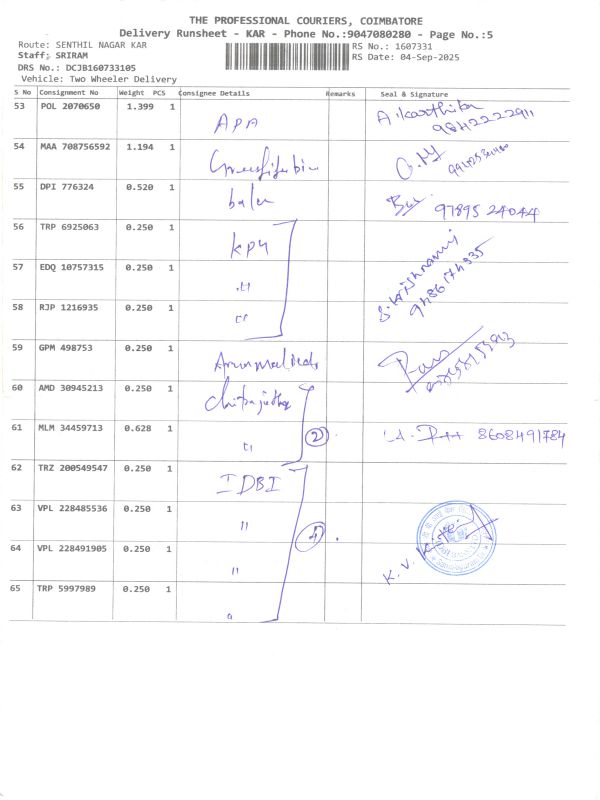 THE PROFESSIONAL COURIERS, COIMBATORE
Delivery Runsheet - KAR - Phone No.:9047080280 - Page No.:5
Route: SENTHIL NAGAR KAR
RS No.: 1607331
Staff: SRIRAM
RS Date: 04-Sep-2025
DRS No.: DCJB160733105
Vehicle: Two Wheeler Delivery
S No Consignment No Weight PCS Consignee Details Remarks Seal & Signature
53 POL 2070650 1.399 1 APA A. karthika
9842222911
54 MAA 708756592 1.194 1
55 DPI 776324 0.520 1 balu 97895 24044
56 TRP 6925063 0.250 1 KPY S. Krishnamoorthi
9486174335
57 EDQ 10757315 0.250 1 "
58 RJP 1216935 0.250 1 "
59 GPM 498753 0.250 1
60 AMD 30945213 0.250 1
61 MLM 34459713 0.628 1 " 2 8608491784
62 TRZ 200549547 0.250 1 IDBI
63 VPL 228485536 0.250 1 "
64 VPL 228491905 0.250 1 " 4
K. V.
65 TRP 5997989 0.250 1 "